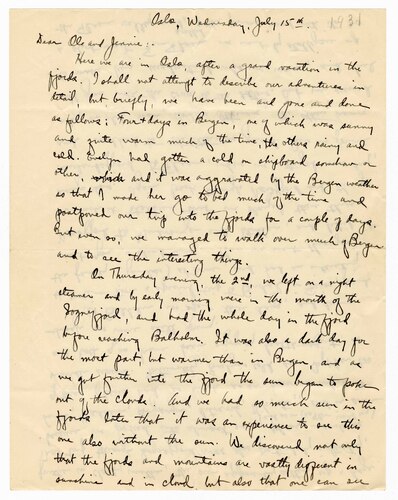 Oslo, Wednesday, July 15th. 1931
Dear Ole and Jennie:
Here we are in Oslo, after a grand vacation in the
fjords. I shall not attempt to describe our adventures in
detail, but briefly, we have been and gone and done
as follows: Four days in Bergen, one of which was sunny
and quite warm much of the time, the others rainy and
cold. Evelyn had gotten a cold on shipboard somehow or
other, and it was aggravated by the Bergen weather
so that I made her go to bed much of the time and
postponed our trip into the fjords for a couple of days.
But even so, we managed to walk over much of Bergen
and to see the interesting things.
On Thursday evening, the 2nd, we left on a night
steamer and by early morning were in the mouth of the
Sognefjord, and had the whole day in the fjord
before reaching Balholm. It was also a dark day for
the most part, but warmer than in Bergen, and as
we got further into the fjord the sun began to poke
out of the clouds. And we had so much sun in the
fjords later that it was an experience to see this
one also without the sun. We discovered not only
that the fjords and mountains are vastly different in
sunshine and in cloud but also that one can see